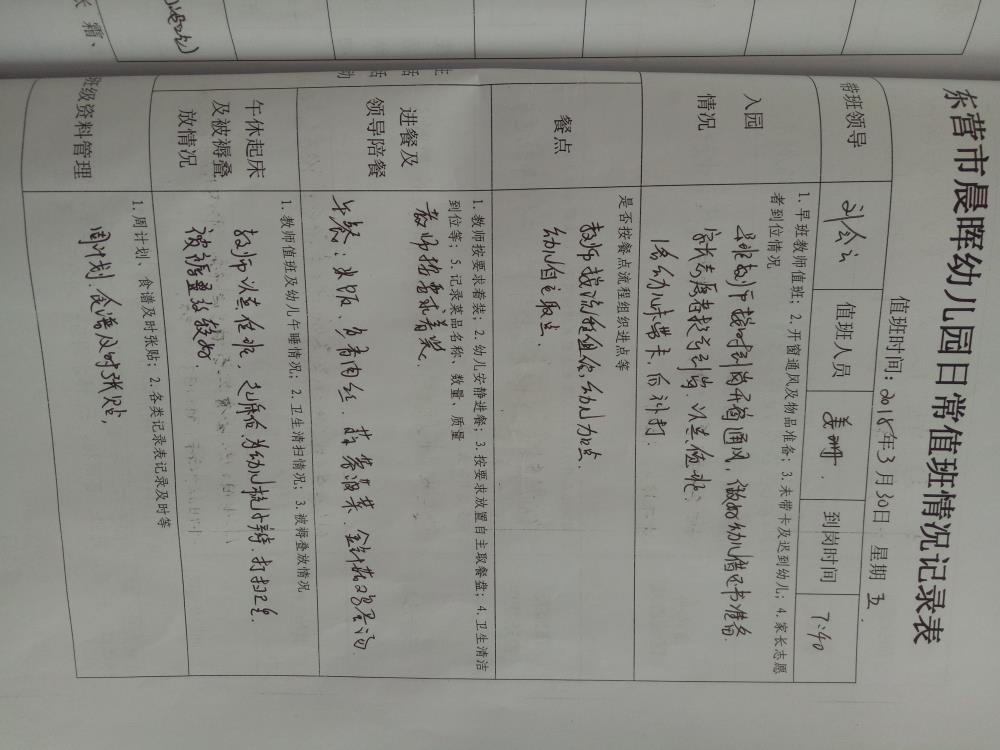 东营市晨晖幼儿园日常值班情况记录表
值班时间：2018年3月30日 星期 五
带班领导
值班人员 姜珊
到岗时间 7:40
入园
情况
1. 早班教师值班；2. 开窗通风及物品准备；3. 未带卡及迟到幼儿；4. 家长志愿
者到位情况
早班教师按时到岗开窗通风，做好幼儿借还书准备
家长志愿者按时到岗，认真值班。
1名幼儿未带卡，后补打.
餐点
是否按餐点流程组织进点等
教师按流程组织幼儿加点.
幼儿自主取点.
进餐及
领导陪餐
1. 教师按要求着装；2. 幼儿安静进餐；3. 按要求放置自主取餐盘；4. 卫生清洁
到位等；5. 记录菜品名称、数量、质量
教师按要求着装.
午餐：米饭、鱼香肉丝、 金针菇鸡蛋汤
午休起床
及被褥叠
放情况
1. 教师值班及幼儿午睡情况；2. 卫生清扫情况；3. 被褥叠放情况
教师认真值班，起床后为幼儿梳小辫，打扫卫生.
被褥叠放较好.
班级资料管理
1. 周计划、食谱及时张贴；2. 各类记录表记录及时等
周计划、食谱及时张贴，